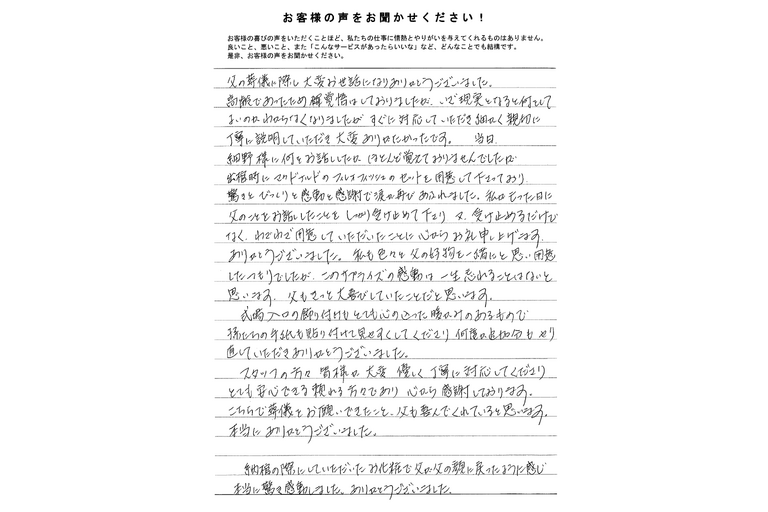 お客様の声をお聞かせください！
お客様の喜びの声をいただくことほど、私たちの仕事に情熱とやりがいを与えてくれるものはありません。
良いこと、悪いこと、また「こんなサービスがあったらいいな」など、どんなことでも結構です。
是非、お客様の声をお聞かせください。
父の葬儀に際し大変お世話になりありがとうございました。
高齢であったため覚悟はしておりましたが、いざ現実となると何をして
よいのかわからなくなりましたが すぐに対応していただき細かく親切に
丁寧に説明していただき大変ありがたかったです。 当日、
細野様に何をお話ししたか ほとんど覚えておりませんでしたが
出棺時に マクドナルドの フィレオフィッシュの セットを用意して下さっており、
驚きと びっくりと感動と感謝で涙が再び あふれました。私がもった日に
父のことをお話ししたことを しっかり受け止めて下さり 又、受け止めるだけで
なく、わざわざ用意していただいたことに心からお礼申し上げます。
ありがとうございました。 私も色々と父の好物を一緒にと思い用意
したつもりでしたが、このサプライズの感動は 一生忘れることはないと
思います。 父もきっと大喜びしていたことだと思います。
式場入口の飾り付けもとても心の込った暖かみのあるもので
孫たちの手紙も貼り付けて見やすくしてくださり 何度か追加分も やり
直していただきありがとうございました。
スタッフの方々 皆様が 大変 優しく 丁寧に対応してくださり
とても安心できる頼れる方々であり 心から感謝しております。
こちらで葬儀をお願いできたこと、父も喜んでくれていると思います。
本当に ありがとうございました。
納棺の際にしていただいた お化粧で 父が父の顔に戻ったように感じ
本当に驚き感動しました。ありがとうございました。